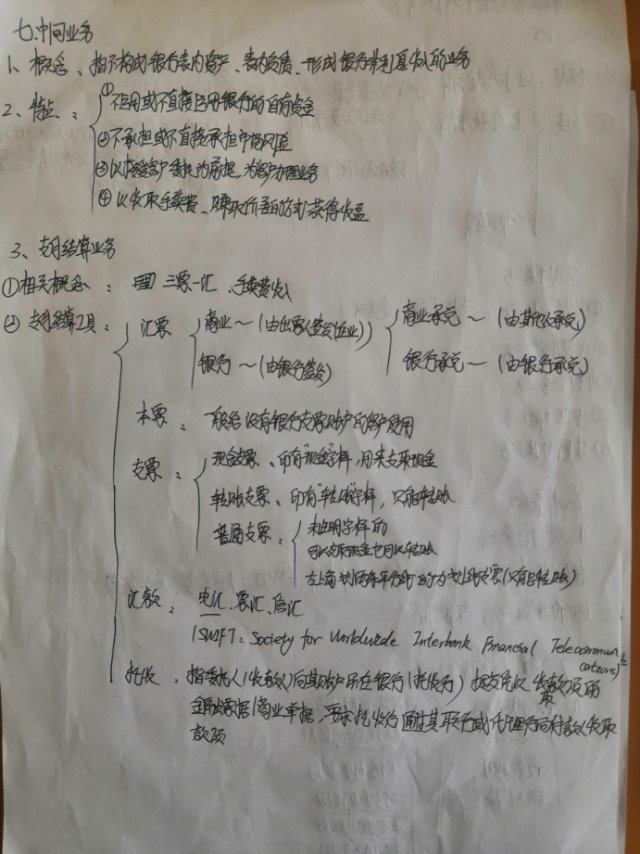 七、中间业务
1、概念：指不构成银行表内资产、表内负债、形成银行非利息收入的业务
2、特点：①不运用或不直接运用银行的自有资金
②不承担或不直接承担市场风险
③以接受客户委托为前提，为客户办理业务
④以收取手续费、赚取价差的方式获得收益
3、支付结算业务
①相关概念：三票一汇、手续费收入
②支付结算工具：
汇票 商业～(由出票人签发(企业)) 商业承兑～(由其他人承兑)
银行～(由银行签发) 银行承兑～(由银行承兑)
本票：一般给没有银行支票账户的客户使用
支票：现金支票、印有"现金"字样，用来支取现金
转账支票、印有"转账"字样，只能转账
普通支票：未注明字样的
可以支取现金也可以转账
左上角划两条平行线的为划线支票(只能转账)
汇款：电汇、票汇、信汇
(SWIFT：Society for Worldwide Interbank Financial Telecommunications)
托收：指委托人(收款人)向其账户所在银行(托收行)提交凭以收取款项的
金融票据/商业单据，要求托收行通过其联行或代理行向付款人收取
款项